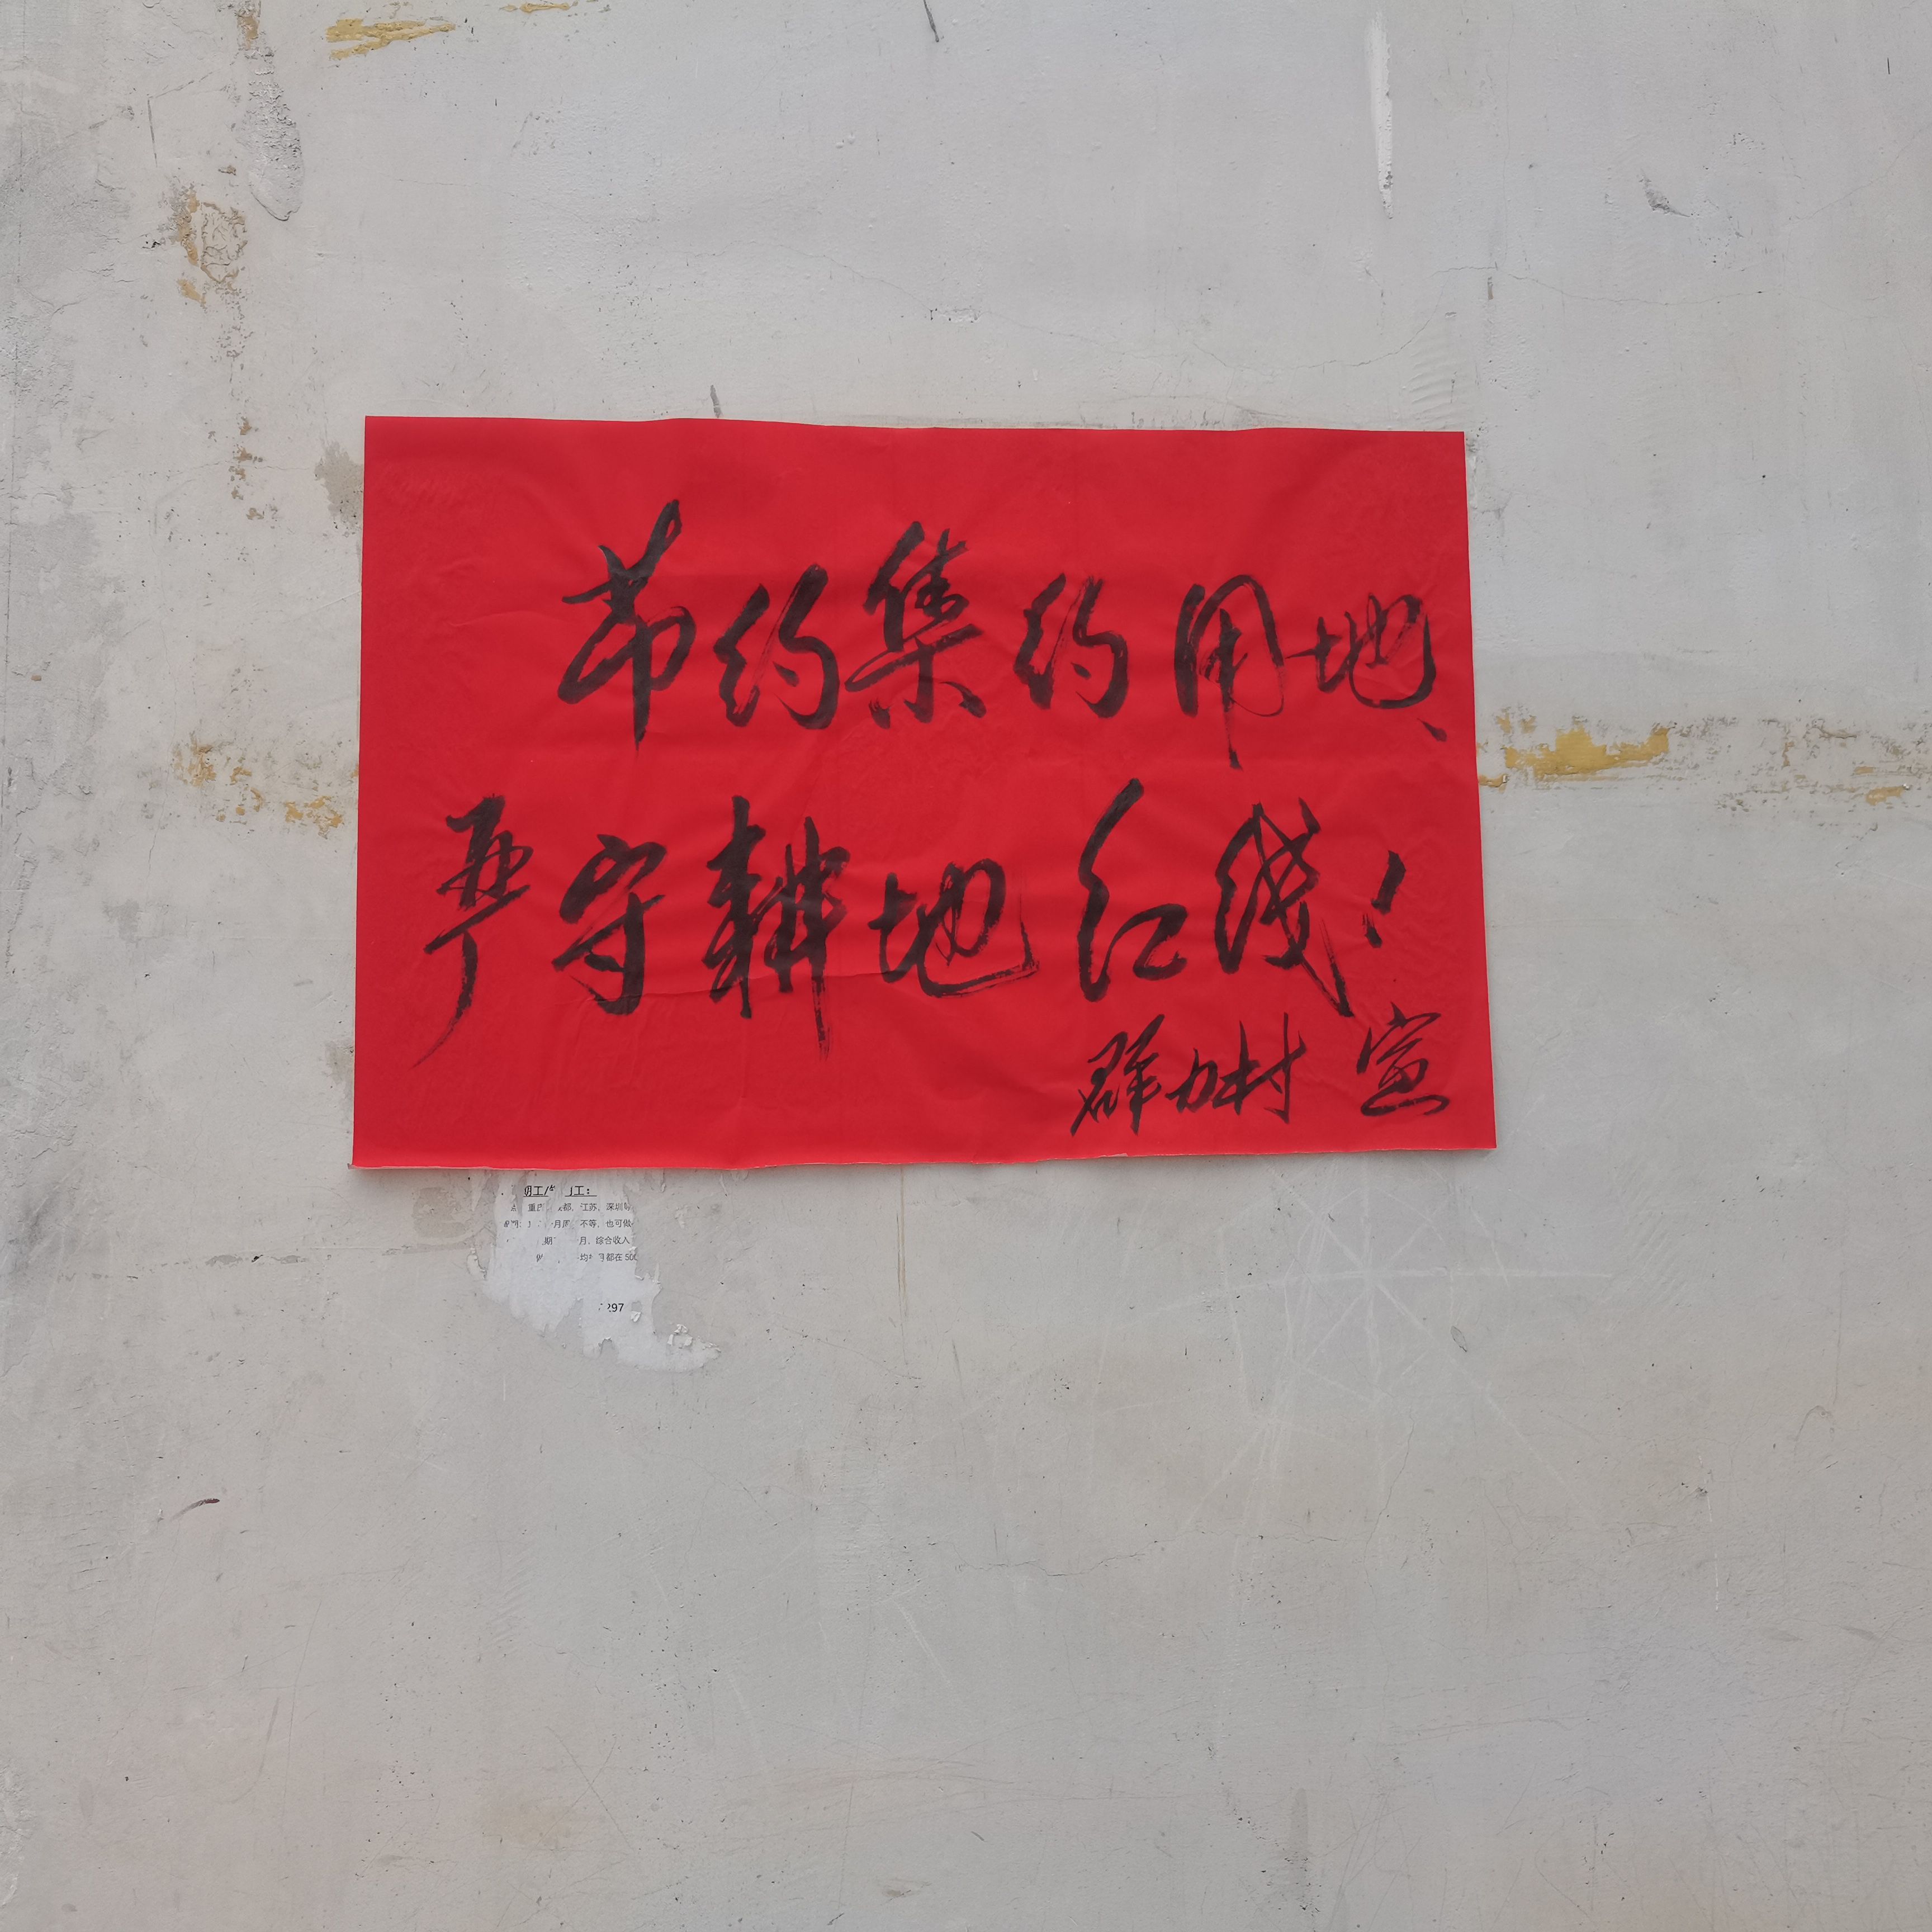 节约集约用地、
严守耕地红线!
群力村 宣
工:
重庆 都、江苏、深圳
月 不等，也可做
期 月、综合收入
均 月都在 500
297